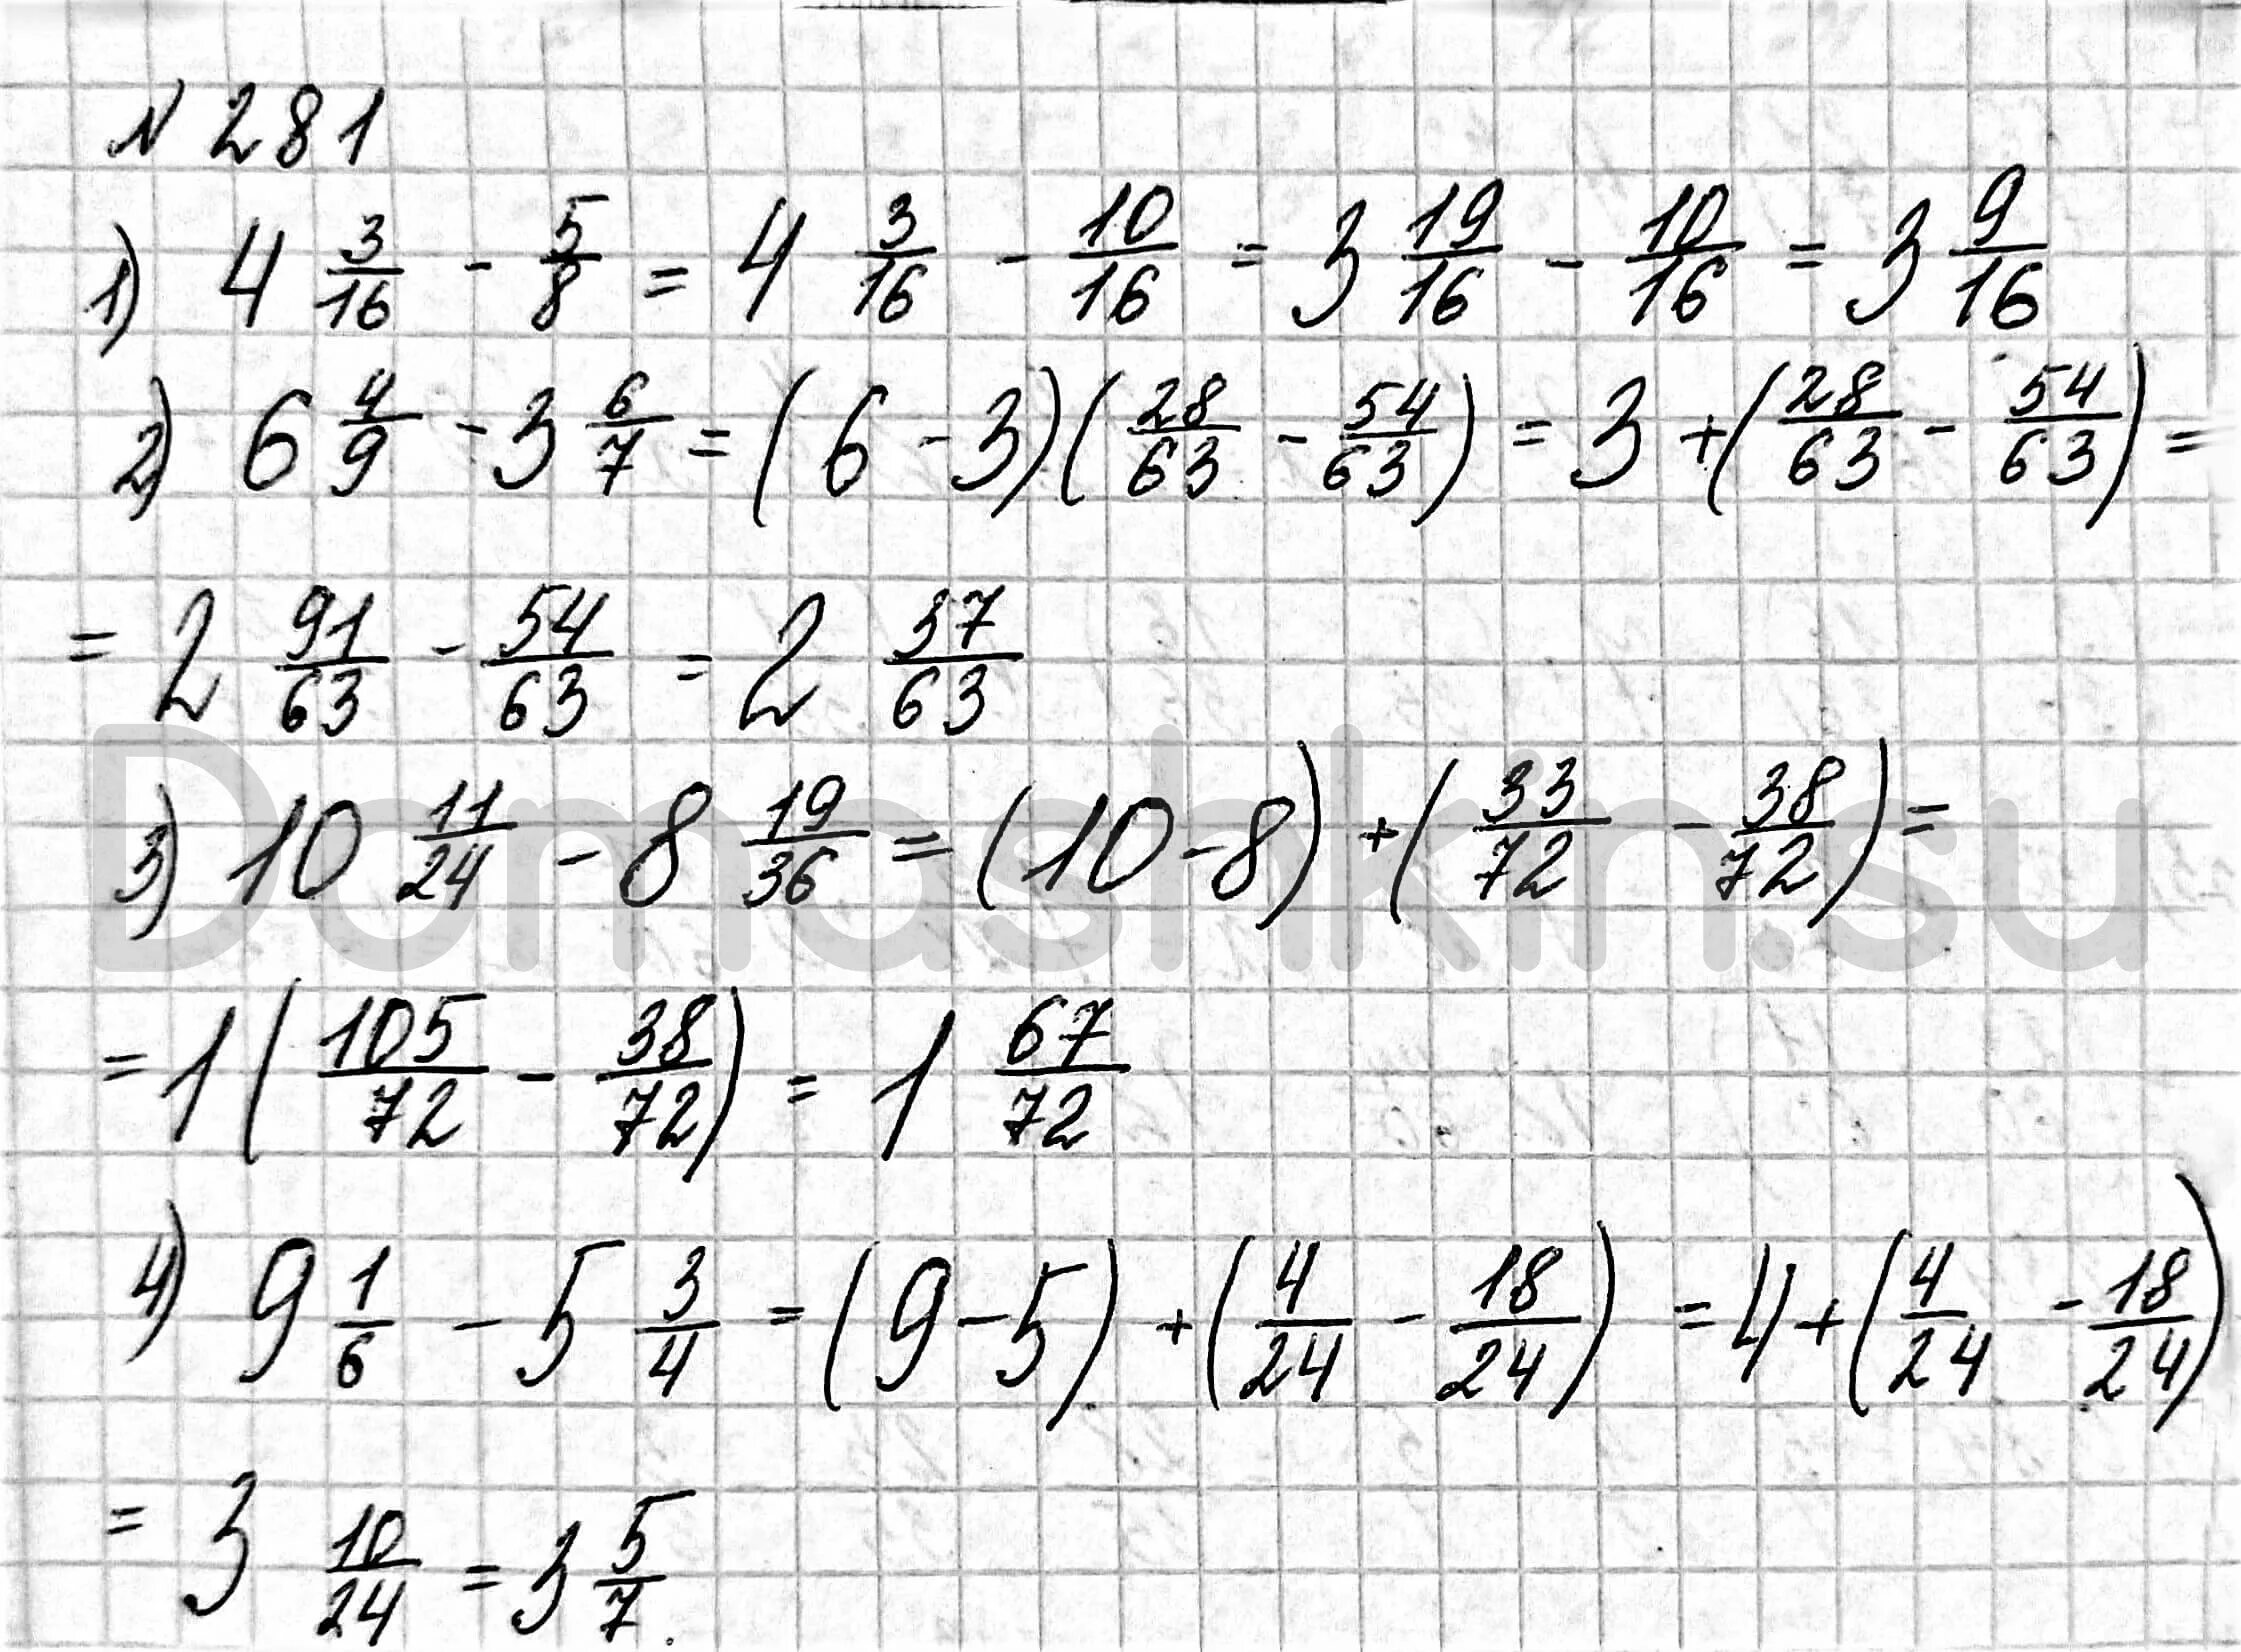 № 281
1) 4 3/16 - 5/8 = 4 3/16 - 10/16 = 3 19/16 - 10/16 = 3 9/16
2) 6 4/9 - 3 6/7 = (6 - 3)(28/63 - 54/63) = 3 + (28/63 - 54/63) =
= 2 91/63 - 54/63 = 2 37/63
Domashkin.su
3) 10 11/24 - 8 19/36 = (10 - 8) + (33/72 - 38/72) =
= 1 (105/72 - 38/72) = 1 67/72
4) 9 1/6 - 5 3/4 = (9 - 5) + (4/24 - 18/24) = 4 + (4/24 - 18/24)
= 3 10/24 = 3 5/7.